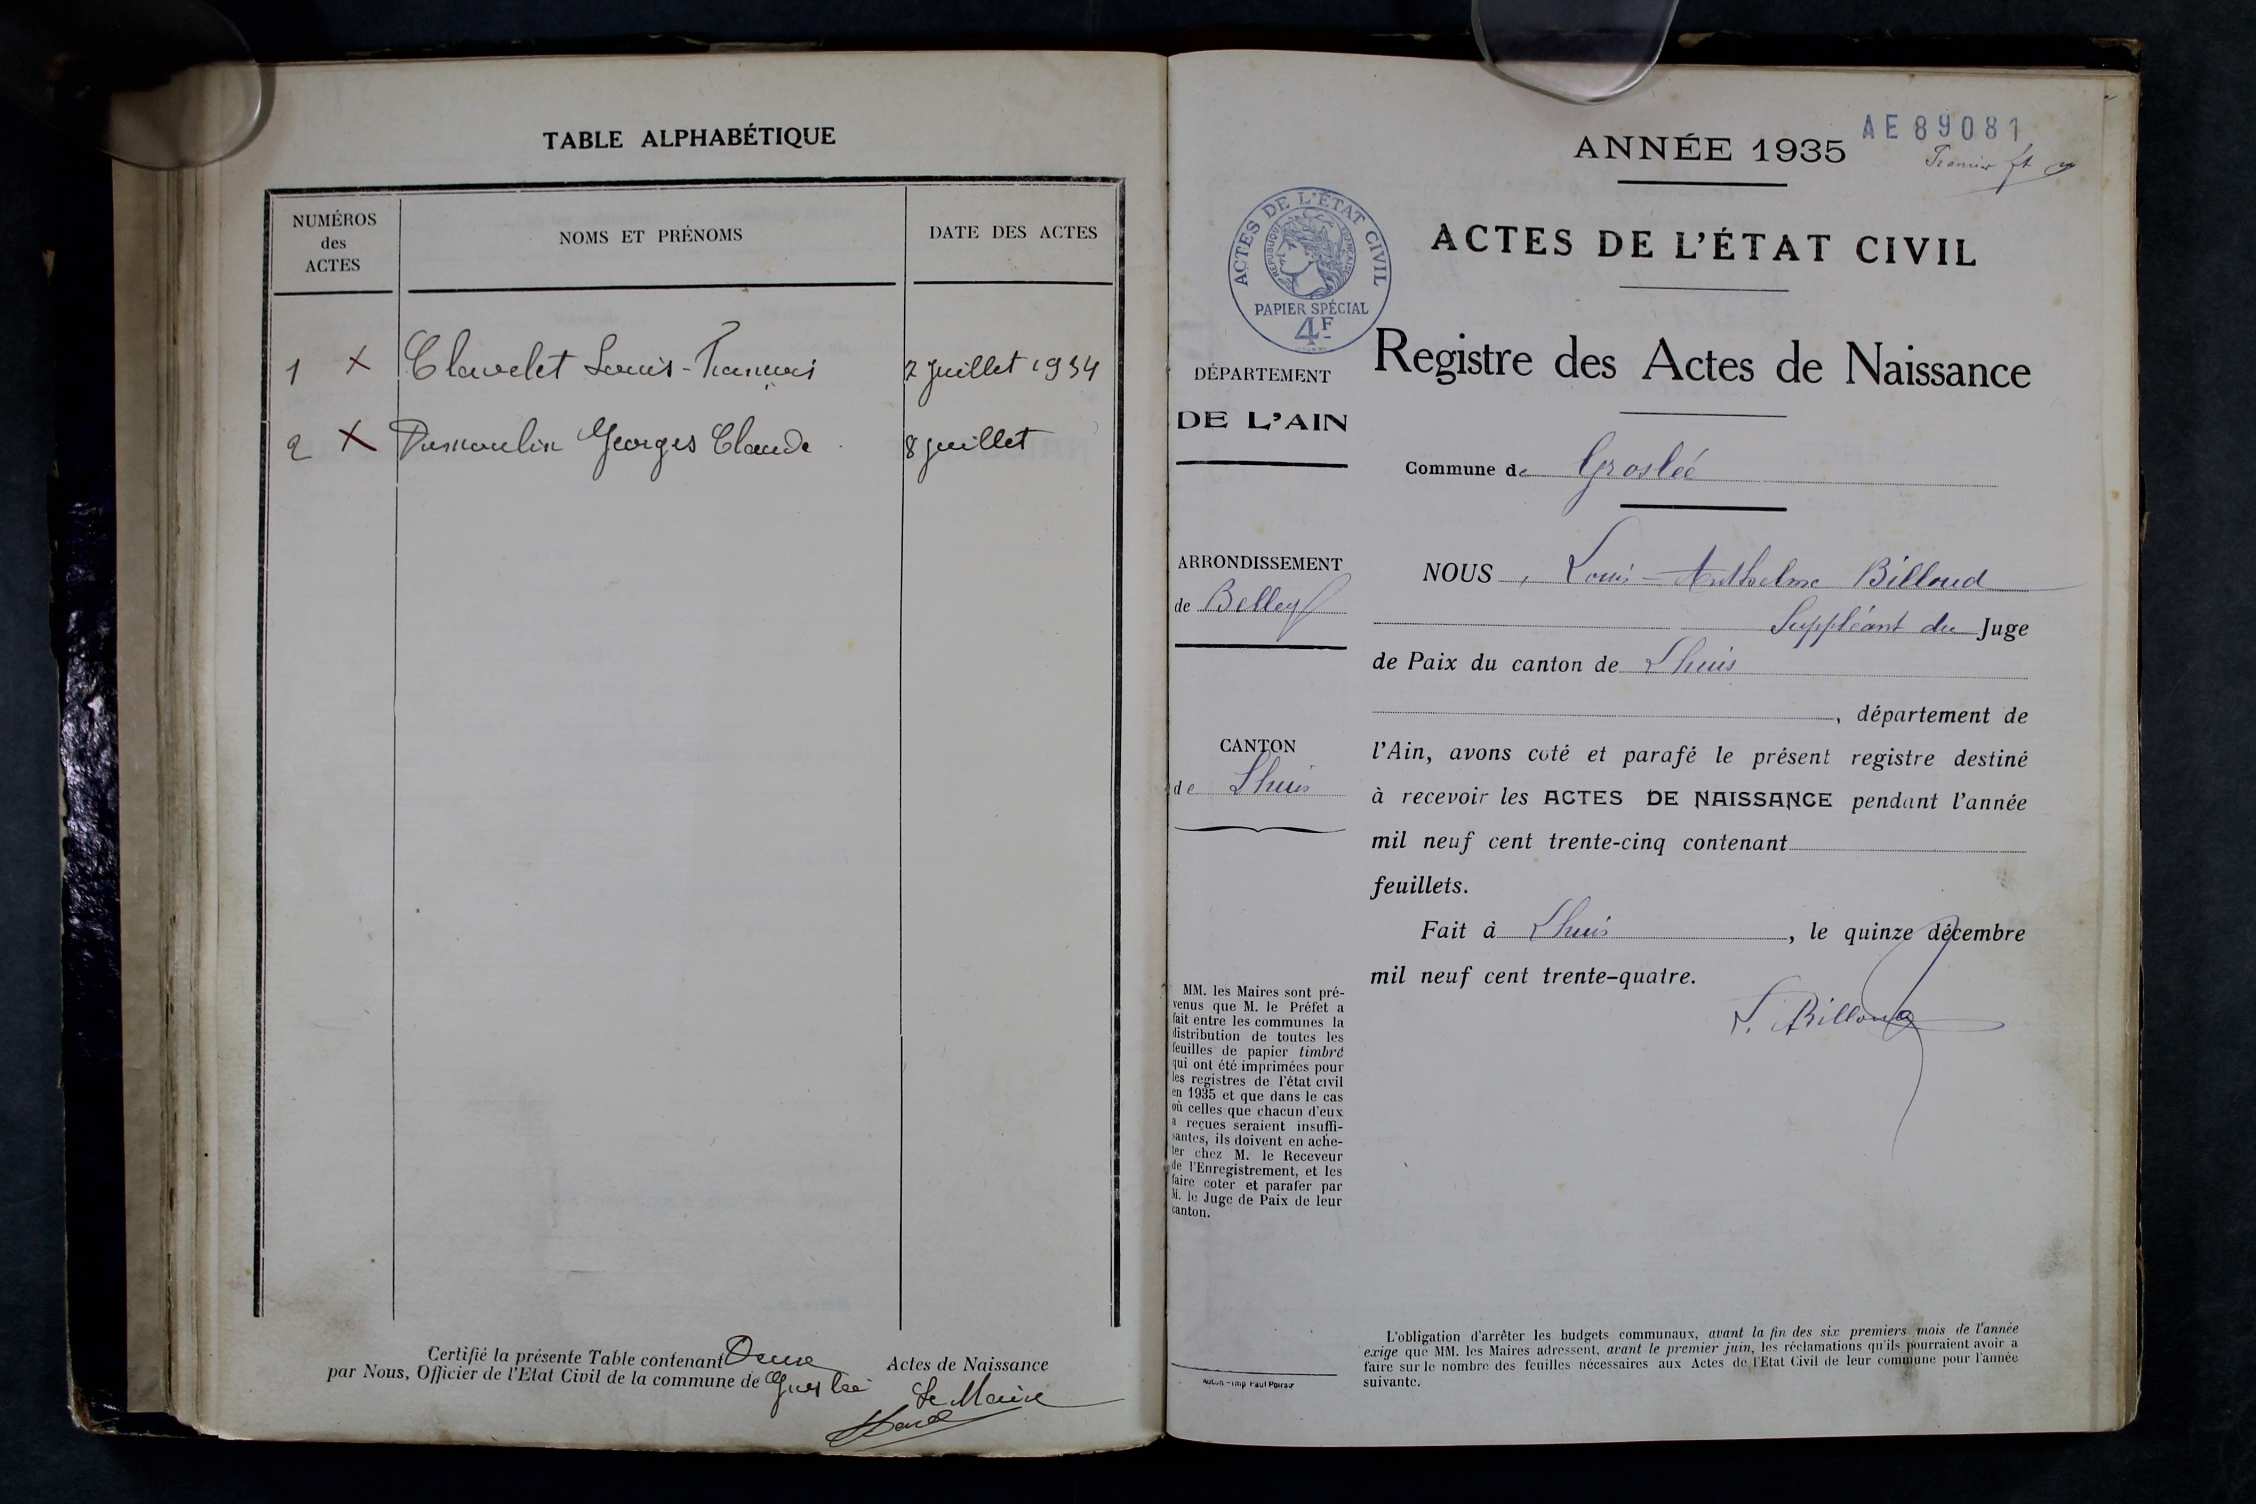 TABLE ALPHABÉTIQUE
NUMÉROS
des
ACTES
NOMS ET PRÉNOMS
DATE DES ACTES
1 X Clavelet Louis-François 2 juillet 1934
2 X Dumoulin Georges Claude 8 juillet
Certifié la présente Table contenant Deux Actes de Naissance
par Nous, Officier de l'Etat Civil de la commune de Groslée
Le Maire
ANNÉE 1935
AE89081
ACTES DE L'ÉTAT CIVIL
RÉPUBLIQUE FRANÇAISE
PAPIER SPÉCIAL
4F
ACTES DE L'ÉTAT CIVIL
Registre des Actes de Naissance
DÉPARTEMENT
DE L'AIN
Commune de Groslée
ARRONDISSEMENT
de Belley
CANTON
de Lhuis
NOUS, Louis-Anthelme Billoud
Suppléant du Juge
de Paix du canton de Lhuis
, département de
l'Ain, avons coté et parafé le présent registre destiné
à recevoir les ACTES DE NAISSANCE pendant l'année
mil neuf cent trente-cinq contenant
feuillets.
Fait à Lhuis, le quinze décembre
mil neuf cent trente-quatre.
L. Billoud
MM. les Maires sont pré-
venus que M. le Préfet a
fait entre les communes la
distribution de toutes les
feuilles de papier timbré
qui ont été imprimées pour
les registres de l'état civil
en 1935 et que dans le cas
où celles que chacun d'eux
a reçues seraient insuffi-
santes, ils doivent en ache-
ter chez M. le Receveur
de l'Enregistrement, et les
faire coter et parafer par
M. le Juge de Paix de leur
canton.
L'obligation d'arrêter les budgets communaux, avant la fin des six premiers mois de l'année
exige que MM. les Maires adressent, avant le premier juin, les réclamations qu'ils pourraient avoir à
faire sur le nombre des feuilles nécessaires aux Actes de l'Etat Civil de leur commune pour l'année
suivante.